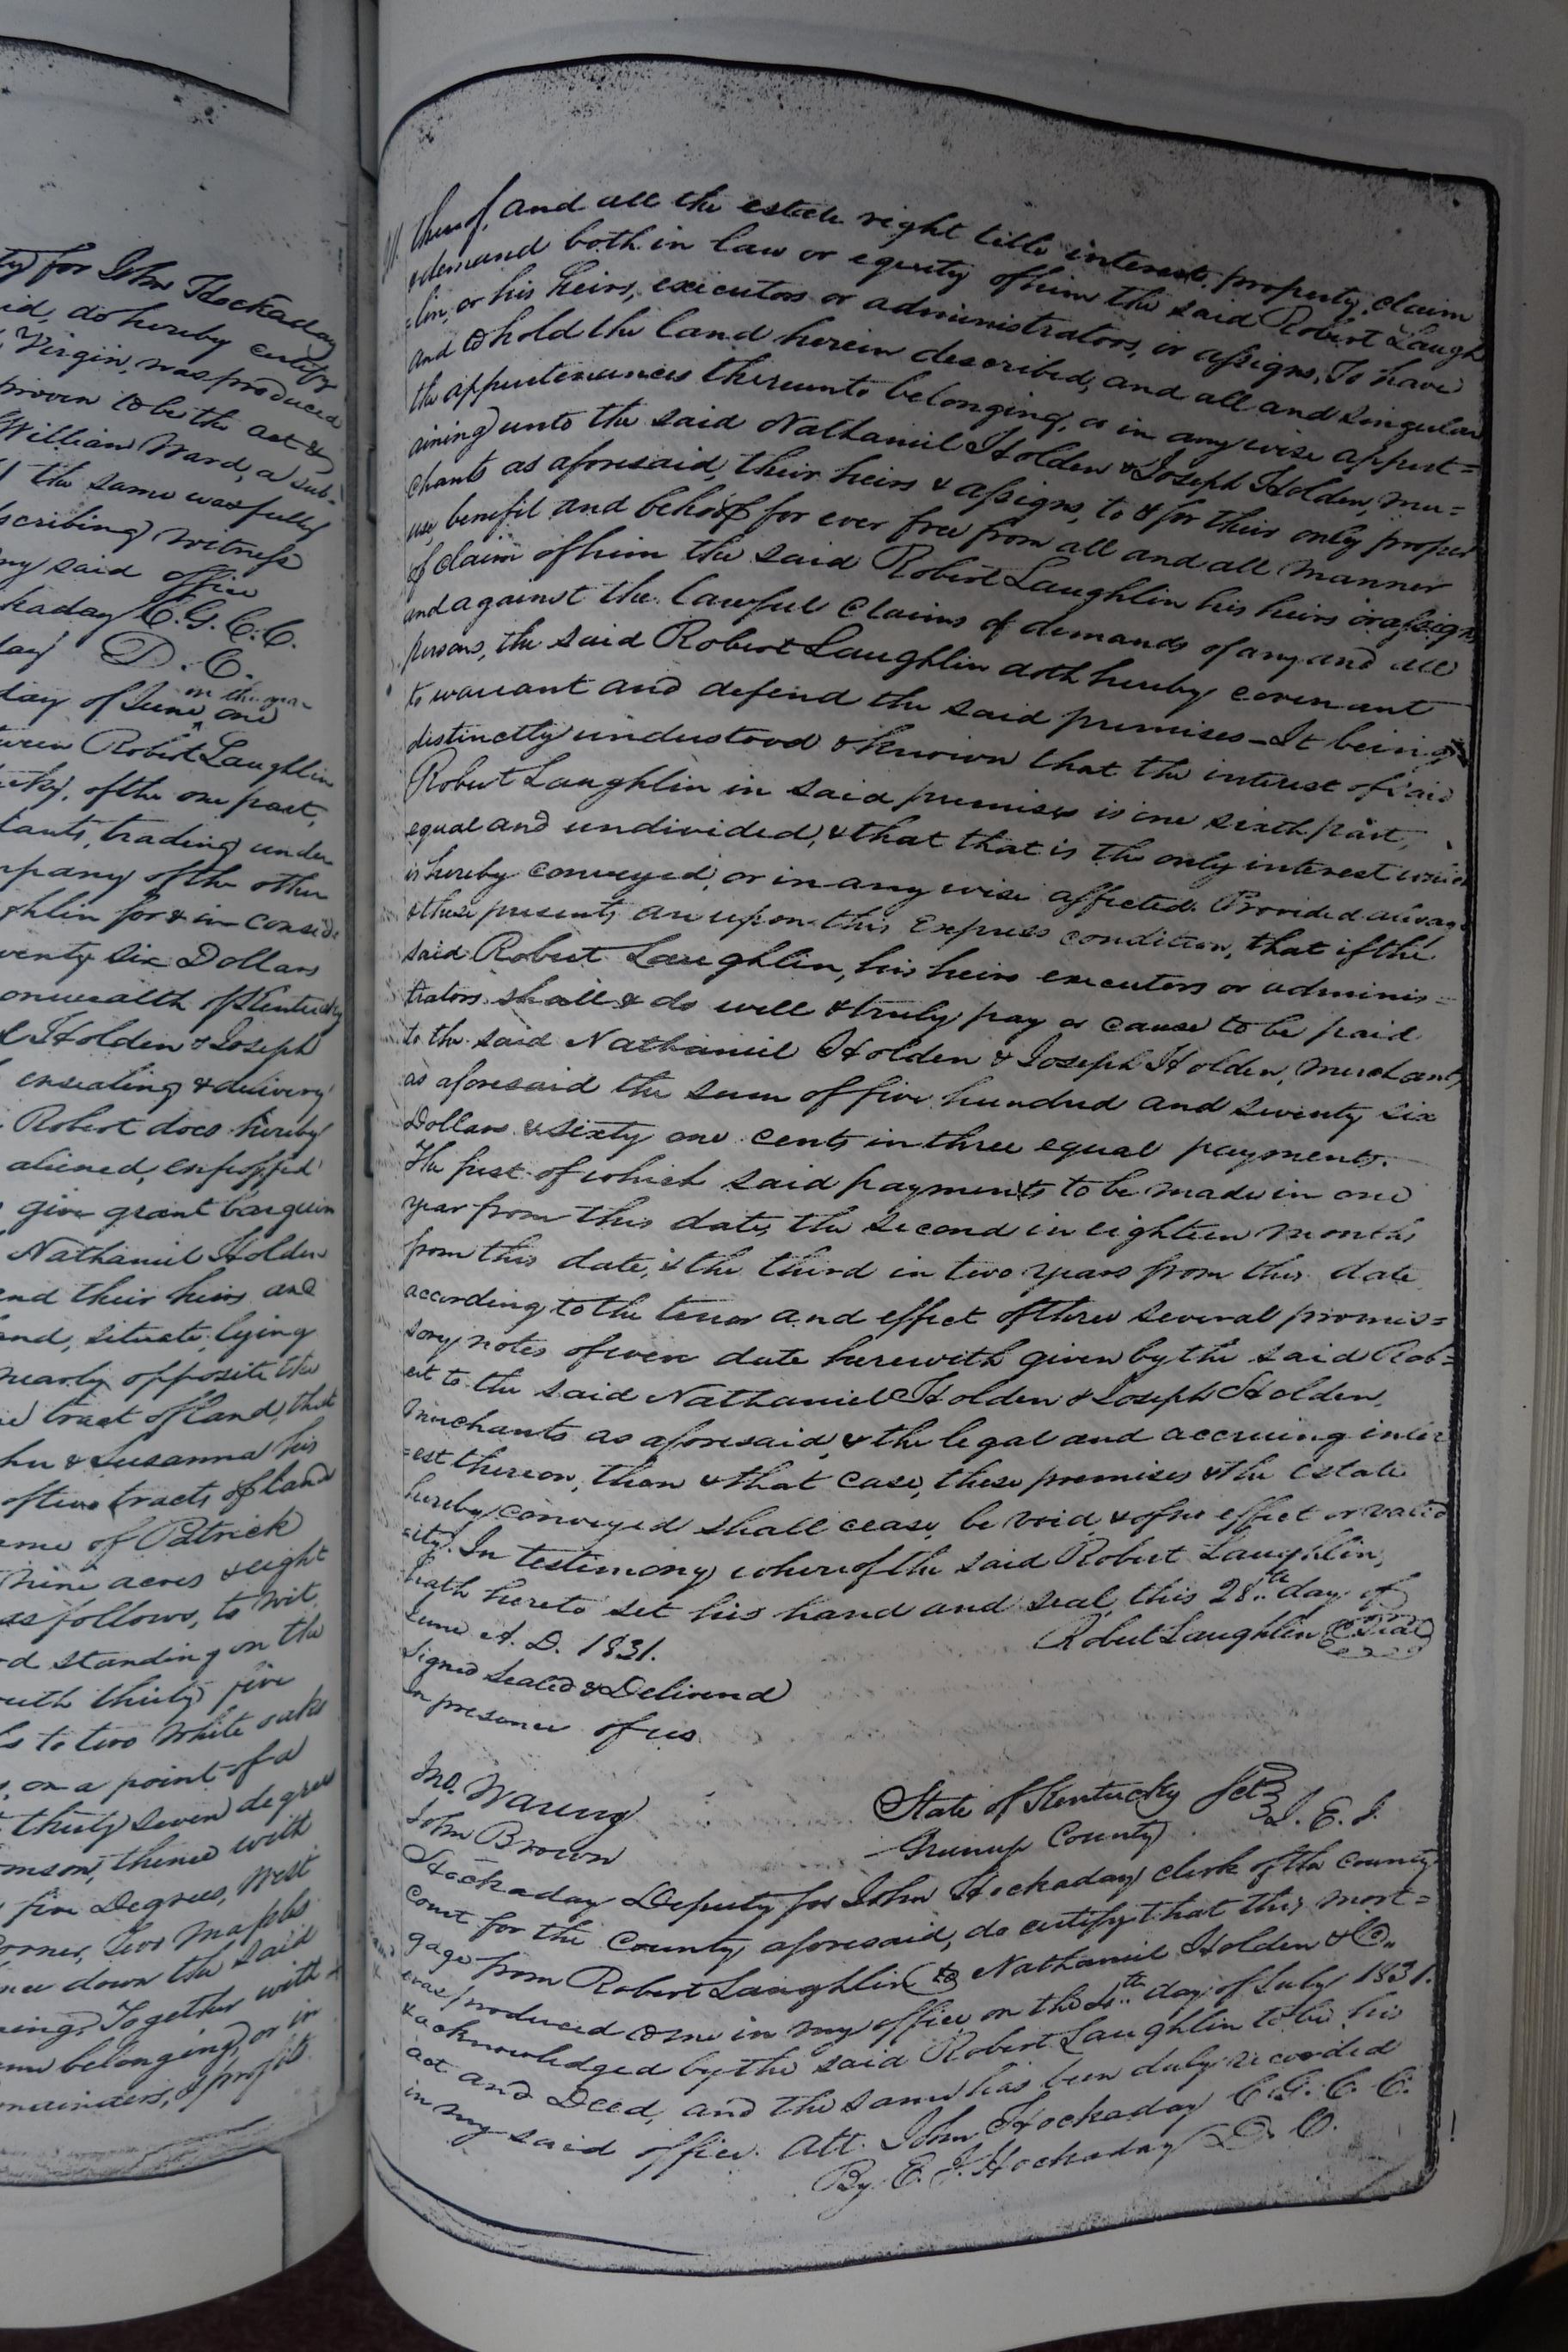 ty) for John Hockaday
id, do hereby certify
Virgin, was produced
proven to be the act &
William Ward, a sub-
the same was fully
scribing witness
my said office
kaday C. G. C. C.
day D. C.
day of June in the year one
tween Robert Laughlin
cky, of the one part,
hants, trading under
mpany of the other
ghlin for & in conside
venty six Dollars
onwealth of Kentucky
l Holden & Joseph
ensealing & delivery
Robert does hereby
aliened, enfeoffed
give grant bargain
Nathaniel Holden
and their heirs and
and, situate, lying
nearly opposite the
tract of land, that
hn & Susanna his
of two tracts of land
ame of Patrick
nine acres & eight
as follows, to wit,
d standing on the
uth thirty five
s to two White oaks
on a point of a
thirty seven degrees
mson, thence with
five Degrees, West
corner, two Maples
nce down the said
ning, Together with
belonging, or in
mainders, & profits
thereof, and all the estate right title interest, property, claim
& demand both in law or equity of him the said Robert Laugh
=lin, or his heirs, executors or administrators, or assigns, To have
and to hold the land herein described, and all and singular
the appurtenances thereunto belonging, or in any wise appert=
aining unto the said Nathaniel Holden & Joseph Holden, mer=
chants as aforesaid, their heirs & assigns, to & for their only proper
use, benefit and behoof for ever free from all and all manner
of claim of him the said Robert Laughlin his heirs or assigns
and against the lawful claims of demands of any and all
persons, the said Robert Laughlin doth hereby covenant
to warrant and defend the said premises — It being
distinctly understood & known that the interest of said
Robert Laughlin in said premises is one sixth part,
equal and undivided, & that that is the only interest which
is hereby conveyed, or in any wise affected. Provided always
& these presents are upon this Express condition, that if the
said Robert Laughlin, his heirs executors or adminis=
trators shall & do well & truly pay or cause to be paid
to the said Nathaniel Holden & Joseph Holden, merchants
as aforesaid the sum of five hundred and seventy six
Dollars & sixty one cents in three equal payments.
The first of which said payments to be made in one
year from this date, the second in eighteen months
from this date, & the third in two years from this date
according to the tenor and effect of three several promis=
sory notes of even date herewith given by the said Rob=
ert to the said Nathaniel Holden & Joseph Holden,
Merchants as aforesaid, & the legal and accruing inter
=est thereon, then & that case, these premises & the Estate
hereby conveyed shall cease, be void & of no effect or valid
=ity. In testimony whereof the said Robert Laughlin,
hath hereto set his hand and seal, this 28th day of
June A. D. 1831.
Robert Laughlin Seal
Signed Sealed & Delivered
in presence of us
Jno. Waring
John Brown
State of Kentucky Sct
Greenup County I. E. J.
Hockaday Deputy for John Hockaday clerk of the County
Court for the County aforesaid, do certify that this mort=
gage from Robert Laughlin to Nathaniel Holden & Co.
was produced to me in my office on the 4th day of July 1831.
& acknowledged by the said Robert Laughlin to be his
act and Deed, and the same has been duly recorded
in my said office. Att. John Hockaday C. G. C. C.
By E. J. Hockaday D. C.